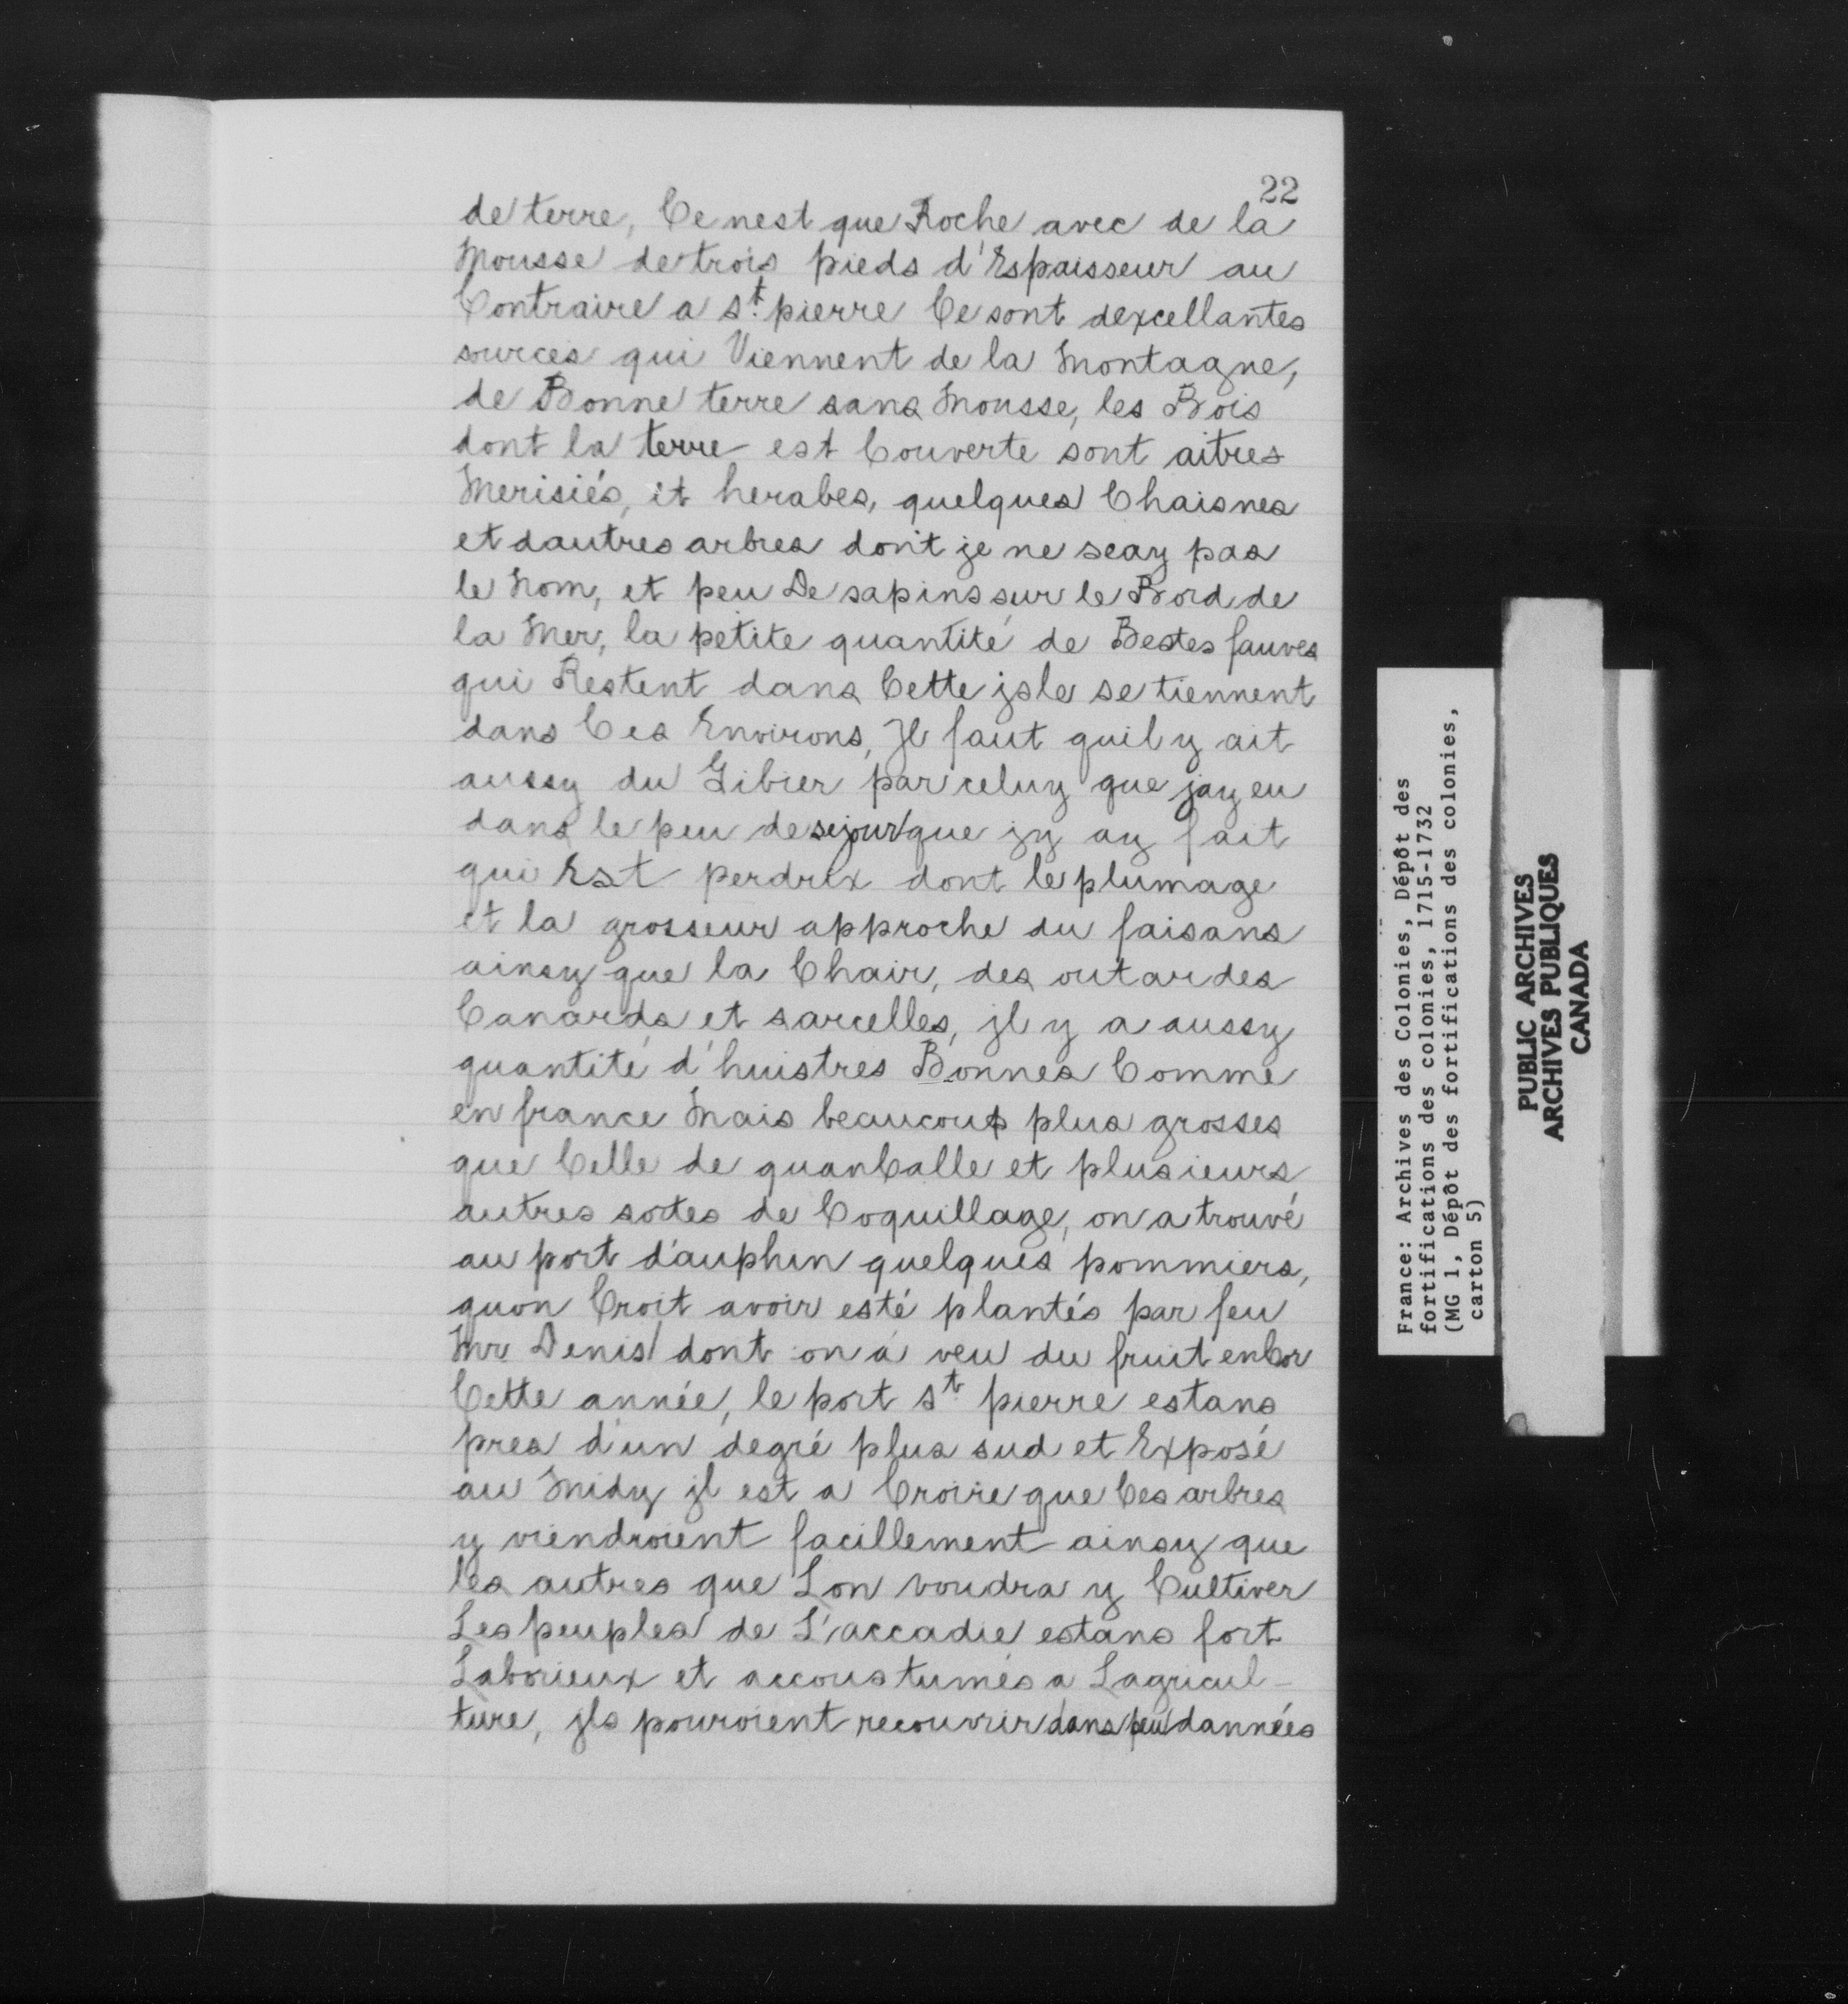 22
de terre, Ce nest que Roche avec de la
Mousse de trois pieds d'Espaisseur au
Contraire a St. pierre Ce sont dexcellantes
sources qui Viennent de la Montagne,
de Bonne terre sans Mousse, les Bois
dont la terre est Couverte sont aitres
Merisiés, et herabes, quelques Chaisnes
et dautres arbres dont je ne scay pas
le Nom, et peu De sapins sur le Bord de
la Mer, la petite quantité de Bestes fauves
qui Restent dans Cette jsle se tiennent
dans Ces Environs, Jl faut quil y ait
aussy du Gibier par celuy que jay eu
dans le peu de sejour que jy ay fait
qui Est perdrix dont le plumage
et la grosseur approche du faisans
ainsy que la Chair, des outardes
Canards et sarcelles, jl y a aussy
quantité d'huistres Bonnes Comme
en france Mais beaucoup plus grosses
que Celle de quanCalle et plusieurs
autres sortes de Coquillage, on a trouvé
au port dauphin quelques pommiers,
quon Croit avoir esté plantés par feu
Mr Denis dont on a veu du fruit enCor
Cette année, le port St. pierre estans
pres d'un degré plus sud et Exposé
au Midy jl est a Croire que Ces arbres
y viendroient facillement ainsy que
les autres que Lon voudra y Cultiver
Les peuples de L'accadie estans fort
Laborieux et accoustumés a Lagricul-
ture, jls pouroient recouvrir dans peu dannées
France: Archives des Colonies, Dépôt des
fortifications des colonies, 1715-1732
(MG 1, Dépôt des fortifications des colonies,
carton 5)
PUBLIC ARCHIVES
ARCHIVES PUBLIQUES
CANADA